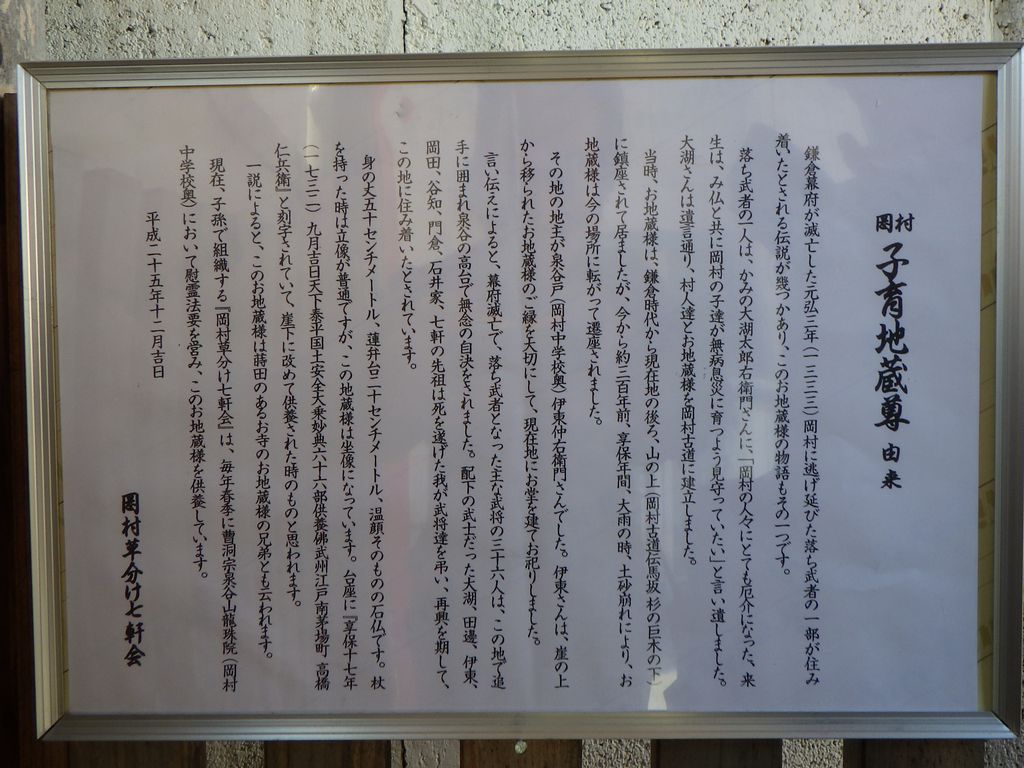 岡村 子育地蔵尊 由来
鎌倉幕府が滅亡した元弘三年(一三三三)岡村に逃げ延びた落ち武者の一部が住み
着いたとされる伝説が幾つかあり、このお地蔵様の物語もその一つです。
落ち武者の一人は、かみの大湖太郎右衛門さんに、「岡村の人々にとても厄介になった、来
生は、み仏と共に岡村の子達が無病息災に育つよう見守っていたい」と言い遺しました。
大湖さんは遺言通り、村人達とお地蔵様を岡村古道に建立しました。
当時、お地蔵様は、鎌倉時代から現在地の後ろ、山の上(岡村古道伝馬坂 杉の巨木の下)
に鎮座されて居ましたが、今から約三百年前、享保年間、大雨の時、土砂崩れにより、お
地蔵様は今の場所に転がって遷座されました。
その地の地主が泉谷戸(岡村中学校奥)伊東仲右衛門さんでした。伊東さんは、崖の上
から移られたお地蔵様のご縁を大切にして、現在地にお堂を建てお祀りしました。
言い伝えによると、幕府滅亡して、落ち武者となった主な武将の三十六人は、この地で追
手に囲まれ泉谷の高台で無念の自決をされました。配下の武士だった大湖、田邊、伊東、
岡田、谷知、門倉、石井家、七軒の先祖は死を遂げた我が武将達を弔い、再興を期して、
この地に住み着いたとされています。
身の丈五十センチメートル、蓮弁台二十センチメートル、温顔そのものの石仏です。杖
を持った時は立像が普通ですが、この地蔵様は坐像になっています。台座に『享保十七年
(一七三二)九月吉日天下泰平国土安全大乗妙典六十六部供養佛武州江戸南茅場町 高橋
仁兵衛』と刻字されていて、崖下に改めて供養された時のものと思われます。
一説によると、このお地蔵様は蒔田のあるお寺のお地蔵様の兄弟とも云われます。
現在、子孫で組織する『岡村草分け七軒会』は、毎年春季に曹洞宗泉谷山龍珠院(岡村
中学校奥)において慰霊法要を営み、このお地蔵様を供養しています。
平成二十五年十二月吉日
岡村草分け七軒会